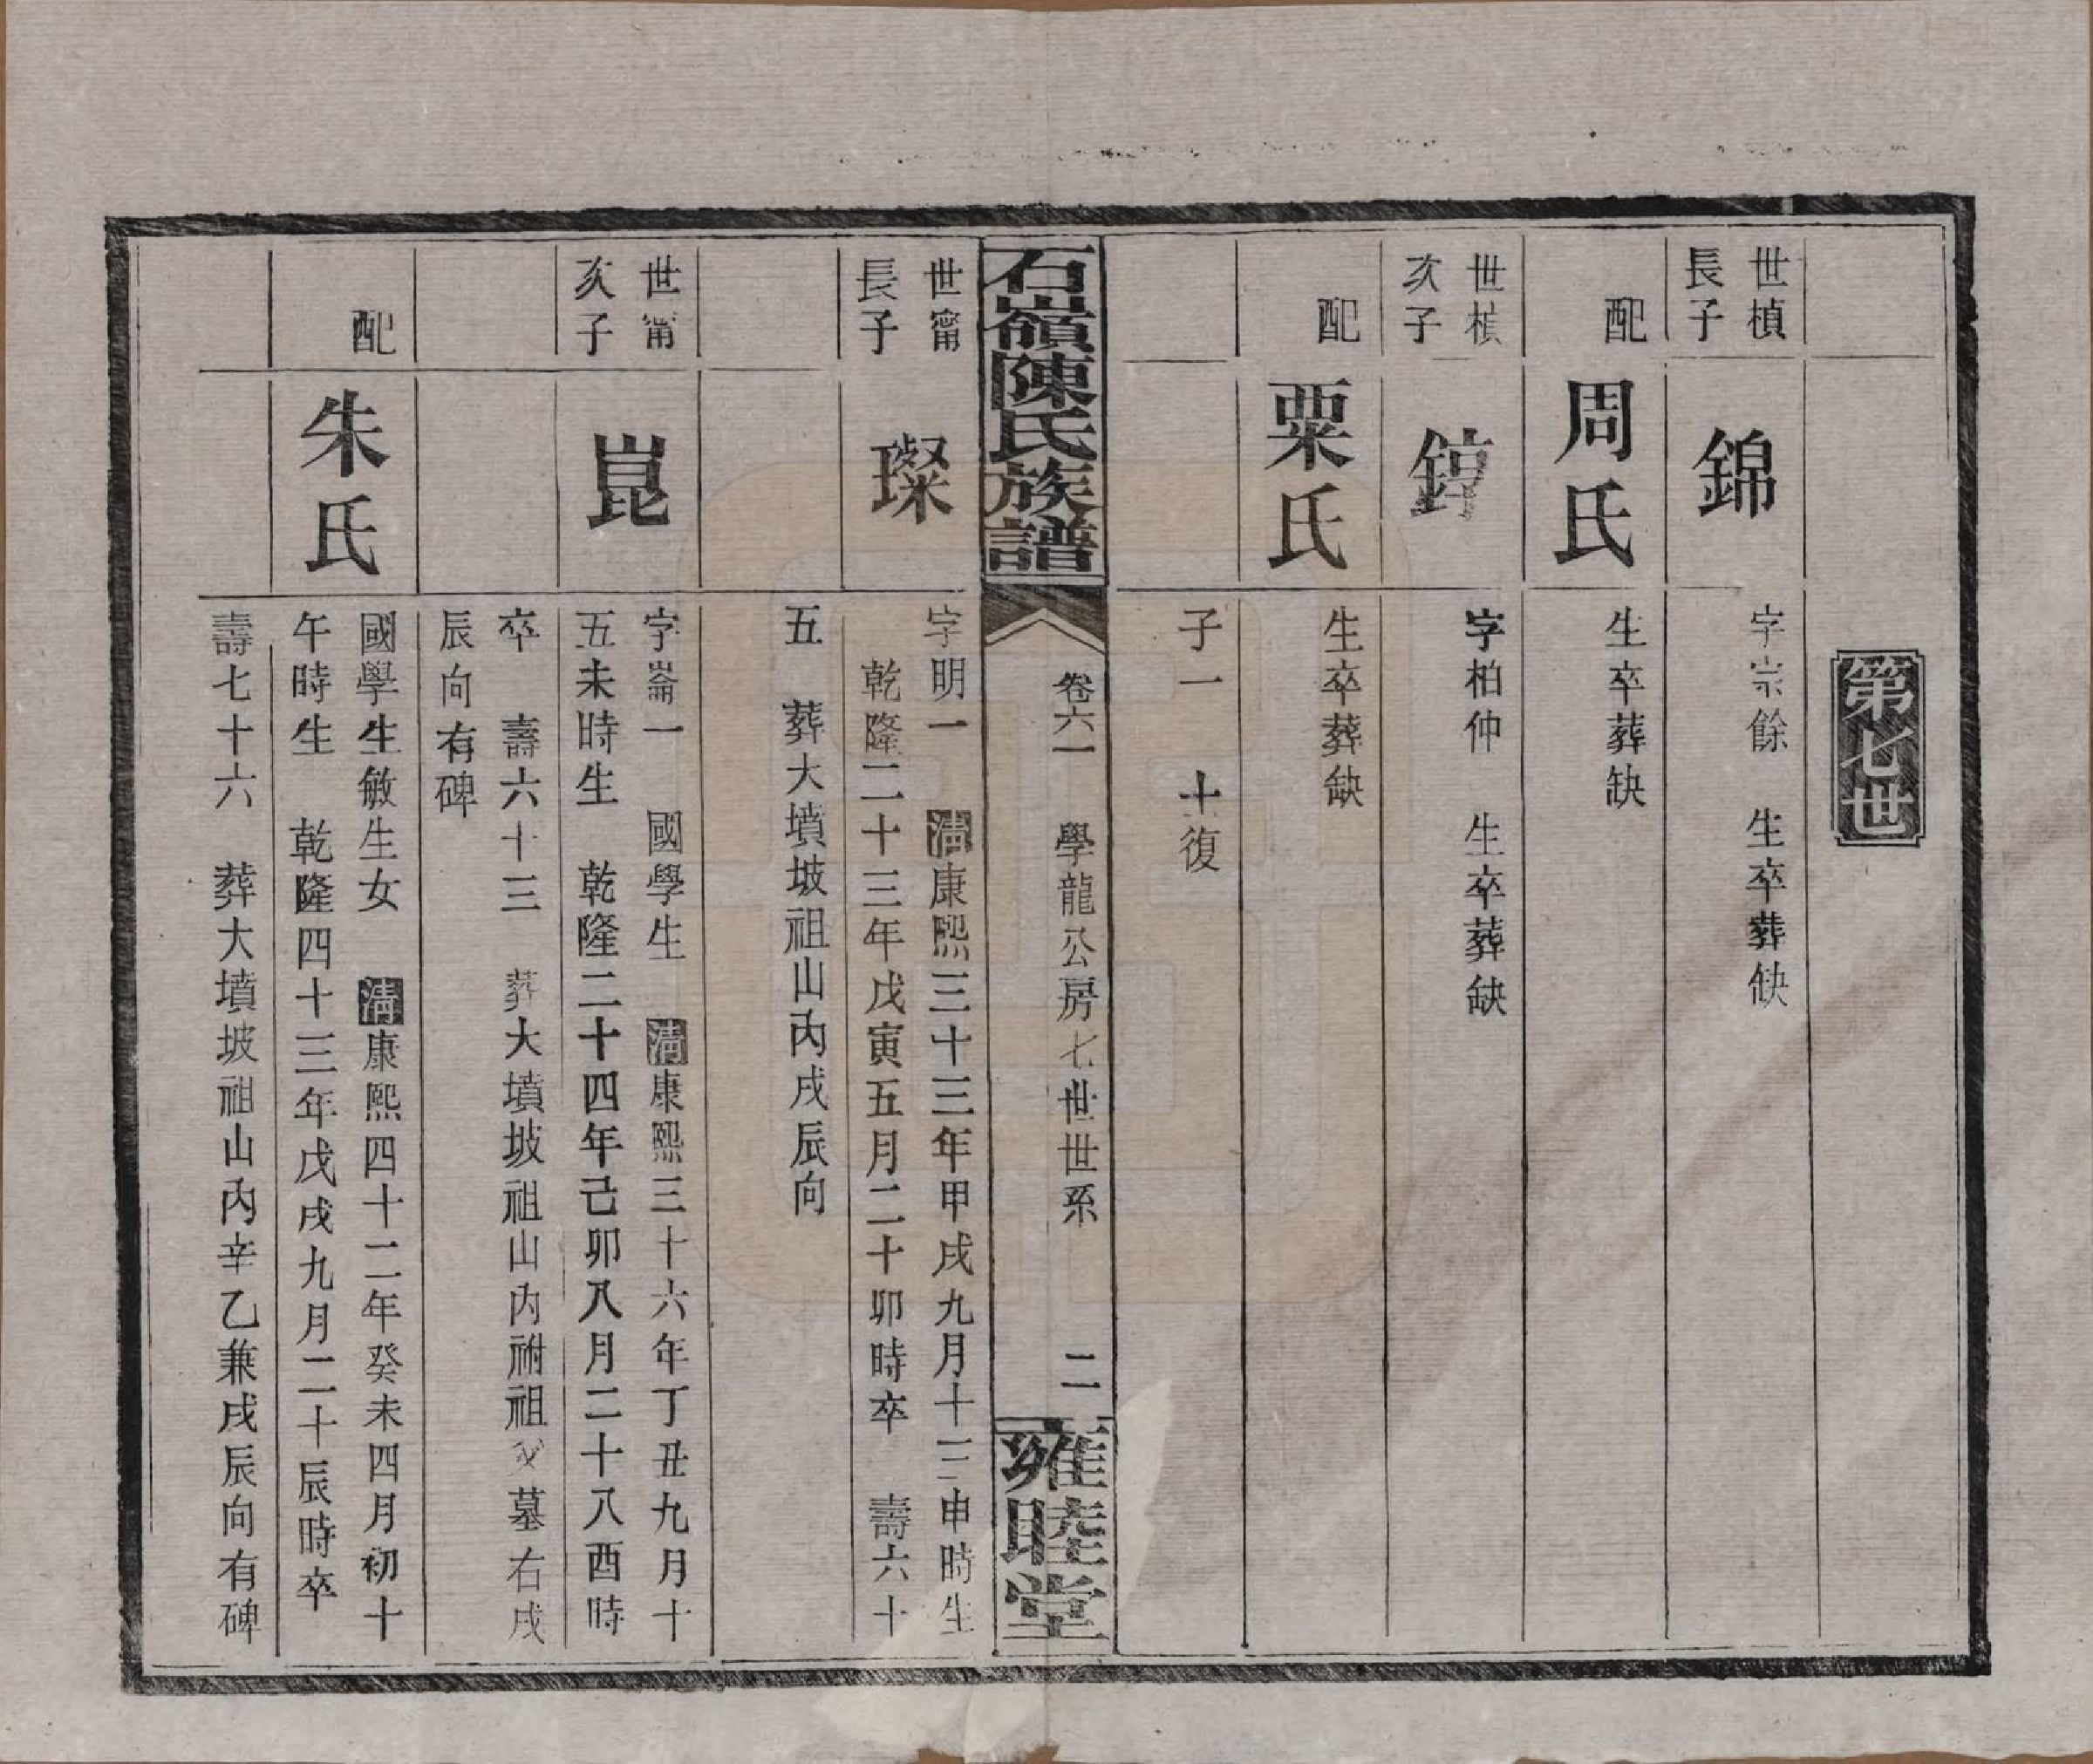 第七世
世楨
長子
錦
字宗餘　生卒葬缺
配
周氏
生卒葬缺
世楨
次子
錞
字柏仲　生卒葬缺
配
粟氏
生卒葬缺
子一　十復
石嶺陳氏族譜
卷六一　學龍公房七世世系　二
雍睦堂
世甯
長子
璨
字明一　清康熙三十三年甲戌九月十三申時生
乾隆二十三年戊寅五月二十卯時卒　壽六十
五　葬大墳坡祖山內戌辰向
世甯
次子
崑
字崙一　國學生　清康熙三十六年丁丑九月十
五未時生　乾隆二十四年己卯八月二十八酉時
卒　壽六十三　葬大墳坡祖山內祔祖父墓右戌
辰向有碑
配
朱氏
國學生敏生女　清康熙四十二年癸未四月初十
午時生　乾隆四十三年戊戌九月二十辰時卒
壽七十六　葬大墳坡祖山內辛乙兼戌辰向有碑